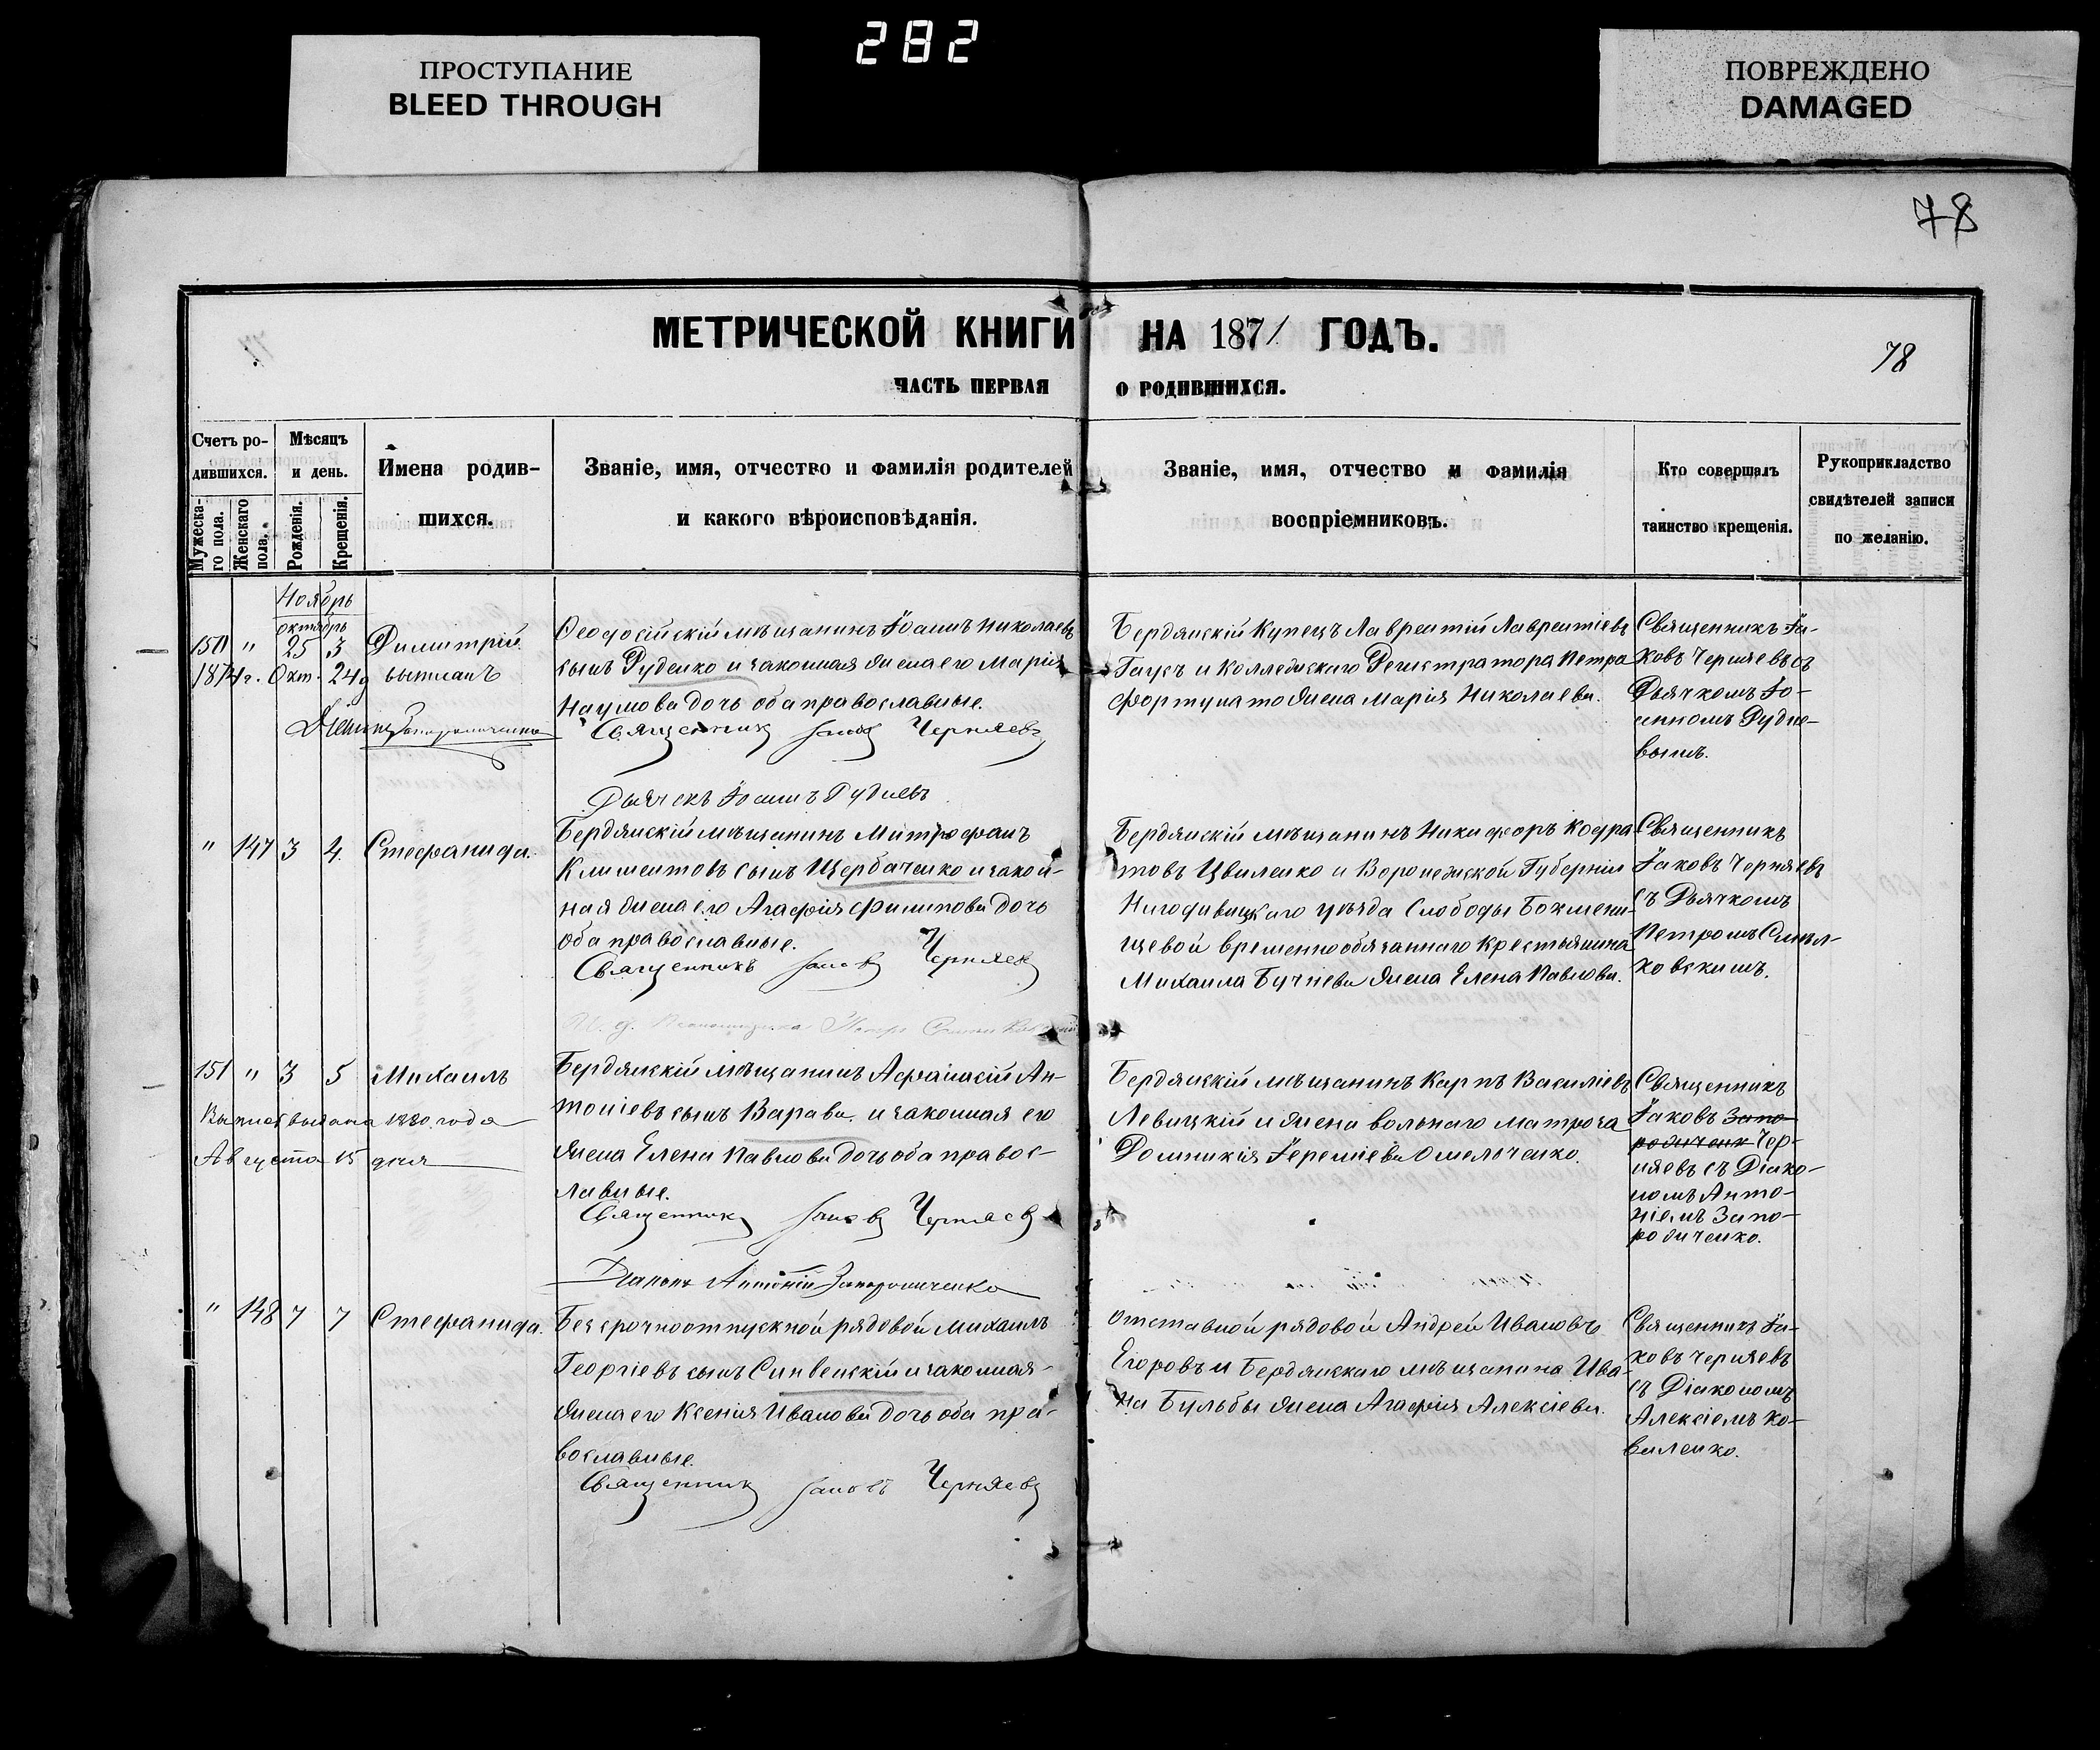 282
ПРОСТУПАНИЕ
BLEED THROUGH
ПОВРЕЖДЕНО
DAMAGED
78
МЕТРИЧЕСКОЙ КНИГИ НА 1871 ГОДЪ.
78
ЧАСТЬ ПЕРВАЯ О РОДИВШИХСЯ.
Счетъ ро-
дившихся.
Мужеска-
го пола.
Женскаго
пола.
Мѣсяцъ
и день.
Рожденія.
Крещенія.
Имена родив-
шихся.
Званіе, имя, отчество и фамилія родителей
и какого вѣроисповѣданія.
Званіе, имя, отчество и фамилія
воспріемниковъ.
Кто совершалъ
таинство крещенія.
Рукоприкладство
свидѣтелей записи
по желанію.
Ноябрь
октябрь
150 " 25 3 Димитрій.
1874 г. Окт. 24 д выписанъ
Феодосійскій мѣщанинъ Іоаннъ Николаевъ
сынъ Руденко и законная жена его Марія
Наумова дочь оба православные.
Священникъ Іаковъ Черняевъ
Дьячекъ Іоаннъ Рудневъ
Бердянскій Купецъ Лаврентій Лаврентіевъ
Гаусъ и Коллежскаго Регистратора Петра
Фортунато жена Марія Николаева.
Священникъ Іа-
ковъ Черняевъ съ
Дьячкомъ Іо-
анномъ Рудне-
вымъ.
" 147 3 4. Стефанида.
Бердянскій мѣщанинъ Митрофанъ
Климентовъ сынъ Щербаченко и закон-
ная жена его Агафія Филипова дочь
оба православные.
Священникъ Іаковъ Черняевъ
Бердянскій мѣщанинъ Никифоръ Кодра-
товъ Цвиленко и Воронежской Губерніи
уѣзда Слободы
временнообязаннаго крестьянина
Михаила жена Елена Павлова.
Священникъ
Іаковъ Черняевъ
съ Дьячкомъ
Петромъ Смѣл-
ковскимъ.
151 " 3 5 Михаилъ
Выпись выдана 1880 года
Августа 15 дня
Бердянскій мѣщанинъ Афанасій Ан-
тоніевъ сынъ Варава и законная его
жена Елена Павлова дочь оба правос-
лавные.
Священникъ Іаковъ Черняевъ
Діаконъ Антоній Запорожченко
Бердянскій мѣщанинъ Карпъ Василіевъ
Левицкій и жена вольнаго матроса
Домникія Іереміева Омельченко.
Священникъ
Іаковъ Запо-
рожченк Чер-
няевъ съ Діако-
номъ Анто-
ніемъ Запо-
рожченко.
" 148 7 7 Стефанида.
Безсрочноотпускной рядовой Михаилъ
Георгіевъ сынъ Синвенскій и законная
жена его Ксенія Иванова дочь оба пра-
вославные.
Священникъ Іаковъ Черняевъ
Отставной рядовой Андрей Ивановъ
Егоровъ и Бердянскаго мѣщанина Ива-
на Бульбы жена Агафія Алексіева.
Священникъ Іа-
ковъ Черняевъ
съ Діакономъ
Алексіемъ Ко-
виленко.